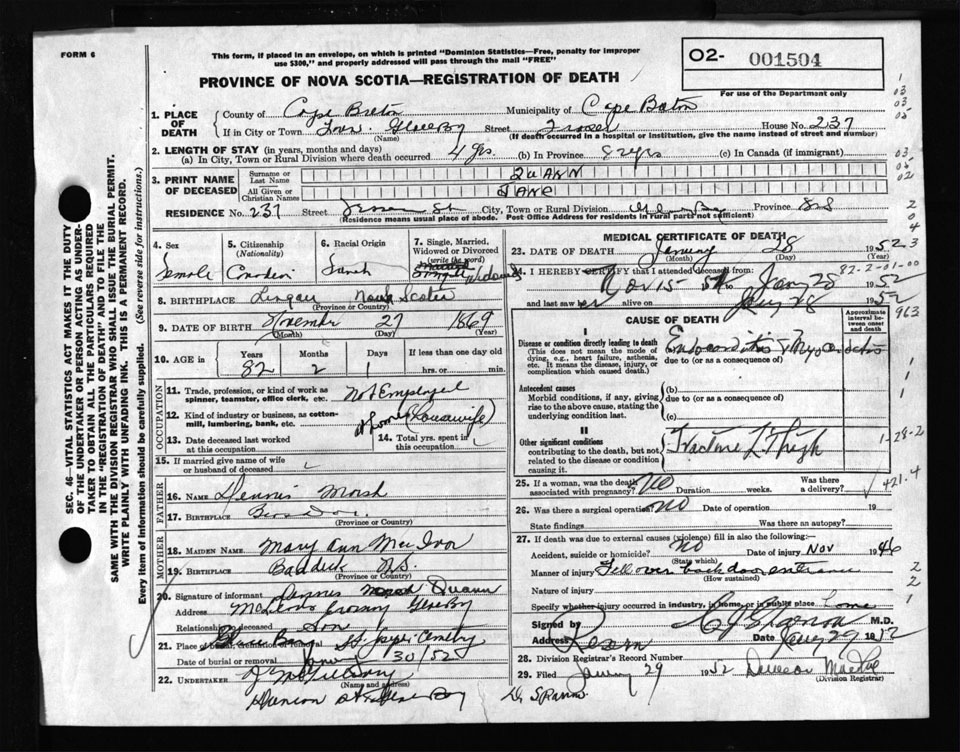 FORM 6
This form, if placed in an envelope, on which is printed "Dominion Statistics—Free, penalty for improper
use $300," and properly addressed will pass through the mail "FREE"
PROVINCE OF NOVA SCOTIA—REGISTRATION OF DEATH
O2- 001504
For use of the Department only
SEC. 46—VITAL STATISTICS ACT MAKES IT THE DUTY
OF THE UNDERTAKER OR PERSON ACTING AS UNDER-
TAKER TO OBTAIN ALL THE PARTICULARS REQUIRED
IN THE "REGISTRATION OF DEATH" AND TO FILE THE
SAME WITH THE DIVISION REGISTRAR WHO SHALL ISSUE THE BURIAL PERMIT.
WRITE PLAINLY WITH UNFADING INK. THIS IS A PERMANENT RECORD.
Every item of information should be carefully supplied. (See reverse side for instructions.)
1. PLACE OF DEATH
County of Cape Breton Municipality of Cape Breton
If in City or Town Town Glace Bay Street House No. 237
(Name) (If death occurred in a hospital or institution, give the name instead of street and number)
2. LENGTH OF STAY (in years, months and days)
(a) In City, Town or Rural Division where death occurred 4 yrs (b) In Province 82 yrs (c) In Canada (if immigrant)
3. PRINT NAME OF DECEASED
Surname or Last Name QUANN
All Given or Christian Names JANE
RESIDENCE No. 237 Street St City, Town or Rural Division Glace Bay Province
(Residence means usual place of abode. Post Office Address for residents in rural parts not sufficient)
4. Sex Female
5. Citizenship (Nationality) Canadian
6. Racial Origin
7. Single, Married, Widowed or Divorced (write the word) Widowed
8. BIRTHPLACE Lingan Nova Scotia
(Province or Country)
9. DATE OF BIRTH November 27 1869
(Month) (Day) (Year)
10. AGE in Years 82 Months 2 Days 1 If less than one day old hrs. or min.
OCCUPATION
11. Trade, profession, or kind of work as spinner, teamster, office clerk, etc. Not Employed
12. Kind of industry or business, as cotton-mill, lumbering, bank, etc. Home (Housewife)
13. Date deceased last worked at this occupation
14. Total yrs. spent in this occupation
15. If married give name of wife or husband of deceased
FATHER
16. NAME Dennis
17. BIRTHPLACE
(Province or Country)
MOTHER
18. MAIDEN NAME Mary Ann MacIvor
19. BIRTHPLACE Baddeck N.S.
(Province or Country)
20. Signature of informant Dennis Quann
Address Crossing Glace Bay
Relationship to deceased Son
21. Place of burial, cremation or removal Glace Bay Cemetery
Date of burial or removal 30/52
22. UNDERTAKER
(Name and address)
MEDICAL CERTIFICATE OF DEATH
23. DATE OF DEATH January 28 1952
(Month) (Day)
24. I HEREBY CERTIFY that I attended deceased from:
Nov 15 to Jany 28 1952
and last saw her Jany 28 1952
82-2-01-00
CAUSE OF DEATH
Approximate interval between onset and death
963
I
Disease or condition directly leading to death
(This does not mean the mode of dying, e.g., heart failure, asthenia, etc. It means the disease, injury, or complication which caused death.)
Endocarditis & Myocarditis
due to (or as a consequence of)
Antecedent causes
Morbid conditions, if any, giving rise to the above cause, stating the underlying condition last.
(b)
due to (or as a consequence of)
(c)
II
Other significant conditions
contributing to the death, but not related to the disease or condition causing it.
Fracture L Thigh
1-28-2
421.4
25. If a woman, was the death associated with pregnancy? No Duration weeks. Was there a delivery?
26. Was there a surgical operation? No Date of operation 19
State findings Was there an autopsy?
27. If death was due to external causes (violence) fill in also the following:
Accident, suicide or homicide? No Date of injury Nov 1946
(State which)
Manner of injury Fell over back door entrance
(How sustained)
Nature of injury
Specify whether injury occurred in industry, in home, or in public place Home
Signed by M.D.
Address Date Jany 29 1952
28. Division Registrar's Record Number
29. Filed January 29 1952
(Division Registrar)